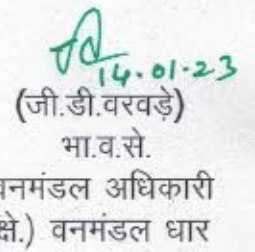 14.01.23
(जी.डी.वरवड़े)
भा.व.से.
वनमंडल अधिकारी
क्षे.) वनमंडल धार